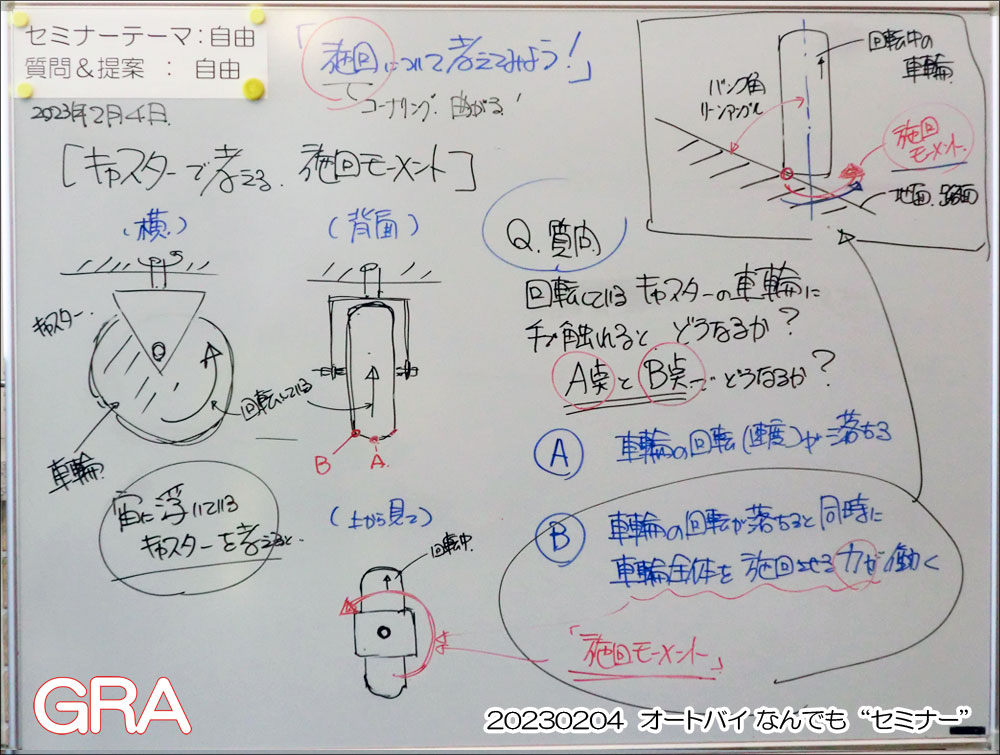 セミナーテーマ:自由
質問&提案 : 自由
2023年2月4日
「旋回について考えてみよう!」
コーナリング. 曲がる!
[キャスターで考える. 旋回モーメント]
(横)
キャスター.
車輪
回転している
宙に浮いている
キャスターを考えると
(背面)
B
A.
(上から見て)
回転中.
Q. 質問.
回転しているキャスターの車輪に
手が触れると どうなるか?
A点とB点… どうなるか?
A 車輪の回転(速度)が落ちる
B 車輪の回転が落ちると同時に
車輪全体を旋回させる力が働く
「旋回モーメント」
回転中の
車輪
バンク角
リーンアングル
旋回
モーメント.
地面. 路面
GRA
20230204 オートバイ なんでも “セミナー”